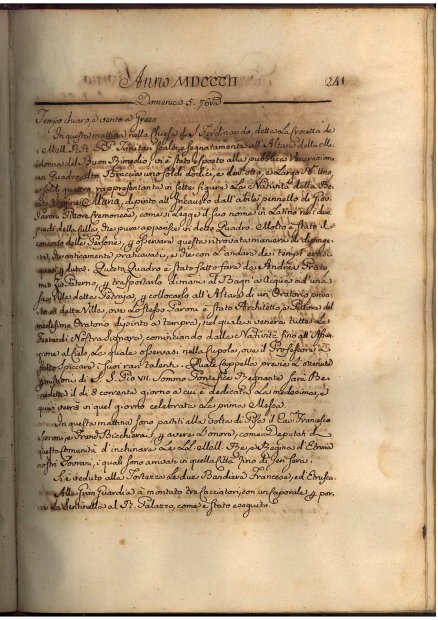 Anno MDCCCII 241
Domenica 5. 7bre
Tempo chiaro, e vento a Greco
In questa mattina nella Chiesa di S. Ferdinando detta La Crocetta de
i Mell. RR. PP. Trinitari Scalzi, e segnatamente all'Altare della Ma
donna del Buon Rimedio, vi è stato esposto alla pubblica Venerazione
un Quadro alto Braccia uno soldi dodici, e largo B. Uno,
e soldi quattro rappresentante in sette figure La Natività della Be
Vergine Maria, dipinto all'Incausto dall'abile pennello di Gio:
Pittore Cremonese, come si legge il suo nome in Latino nei due
piedi della culla, che pure apparisce in detto Quadro. Molto è stato il
concorso delle Persone, per osservare questa ritrovata maniera di dipinge
re, anticamente praticavasi, e che con l'andare dei tempi erasi
quasi perduto. Questo Quadro è stato fatto fare da Andrea
per trasportarlo dimani al Bagni a Acqua ad una
sua Villa detta e collocarlo all'Altare di un Oratorio priva
to di detta Villa, ove lo stesso è stato Architetto, e Pittore del
medesimo Oratorio dipinto a tempra, nel quale si venera tutte le
Feste di Nostra Signora, cominciando dalla Natività fino all'Assun
zione al Cielo, la quale osservasi nella Cupola, ove il Professore à
fatto spiccare i suoi rari talenti. Quale Cappella previe le ottenute
di S. S. Pio VII. Sommo Pontefice Regnante sarà Be
nedetta il dì 8 corrente giorno a cui è dedicata La medesima, e
quivi verrà in quel giorno celebrata La prima Messa.
In questa mattina sono partiti alla volta di Pisa il Cav. Francesco
e Franc. Bicchierai per avere l'onore, come Deputati di
questa Comunità d'inchinare Le LL. MM. Re, e Regina d'Etruria
nostri Sovrani, i quali sono arrivati in quella Città fino di Jeri sera.
Si è veduto alla Fortezza Le due Bandiere Francese, ed Etrusca.
Alla Gran Guardia à montato tre Cacciatori, con un Caporale per por
re la Sentinella al R. Palazzo, come è stato eseguito.